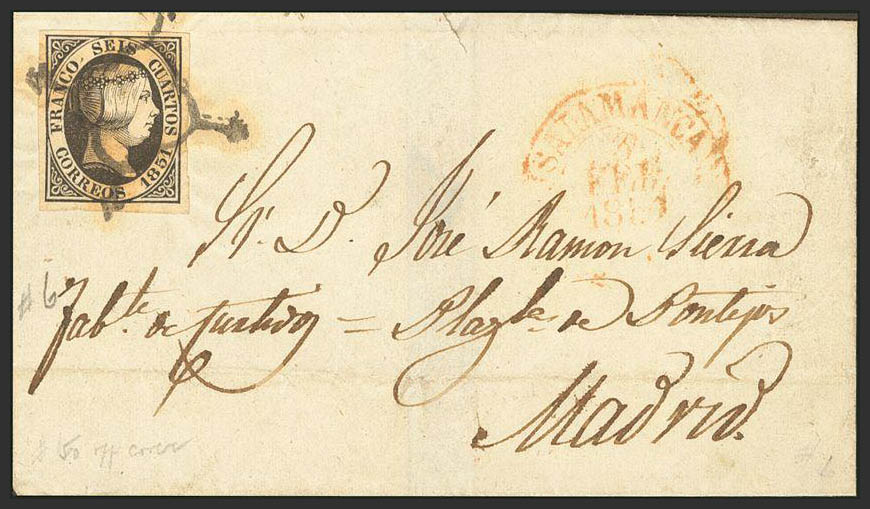 FRANCO SEIS CUARTOS
CORREOS 1851
SALAMANCA
FEB.
1851
Sr. D. José Ramon Sierra
Fabte. de = Plazla. de Pontejos
Madrid.
# 6
$ 50 off cover
# 6